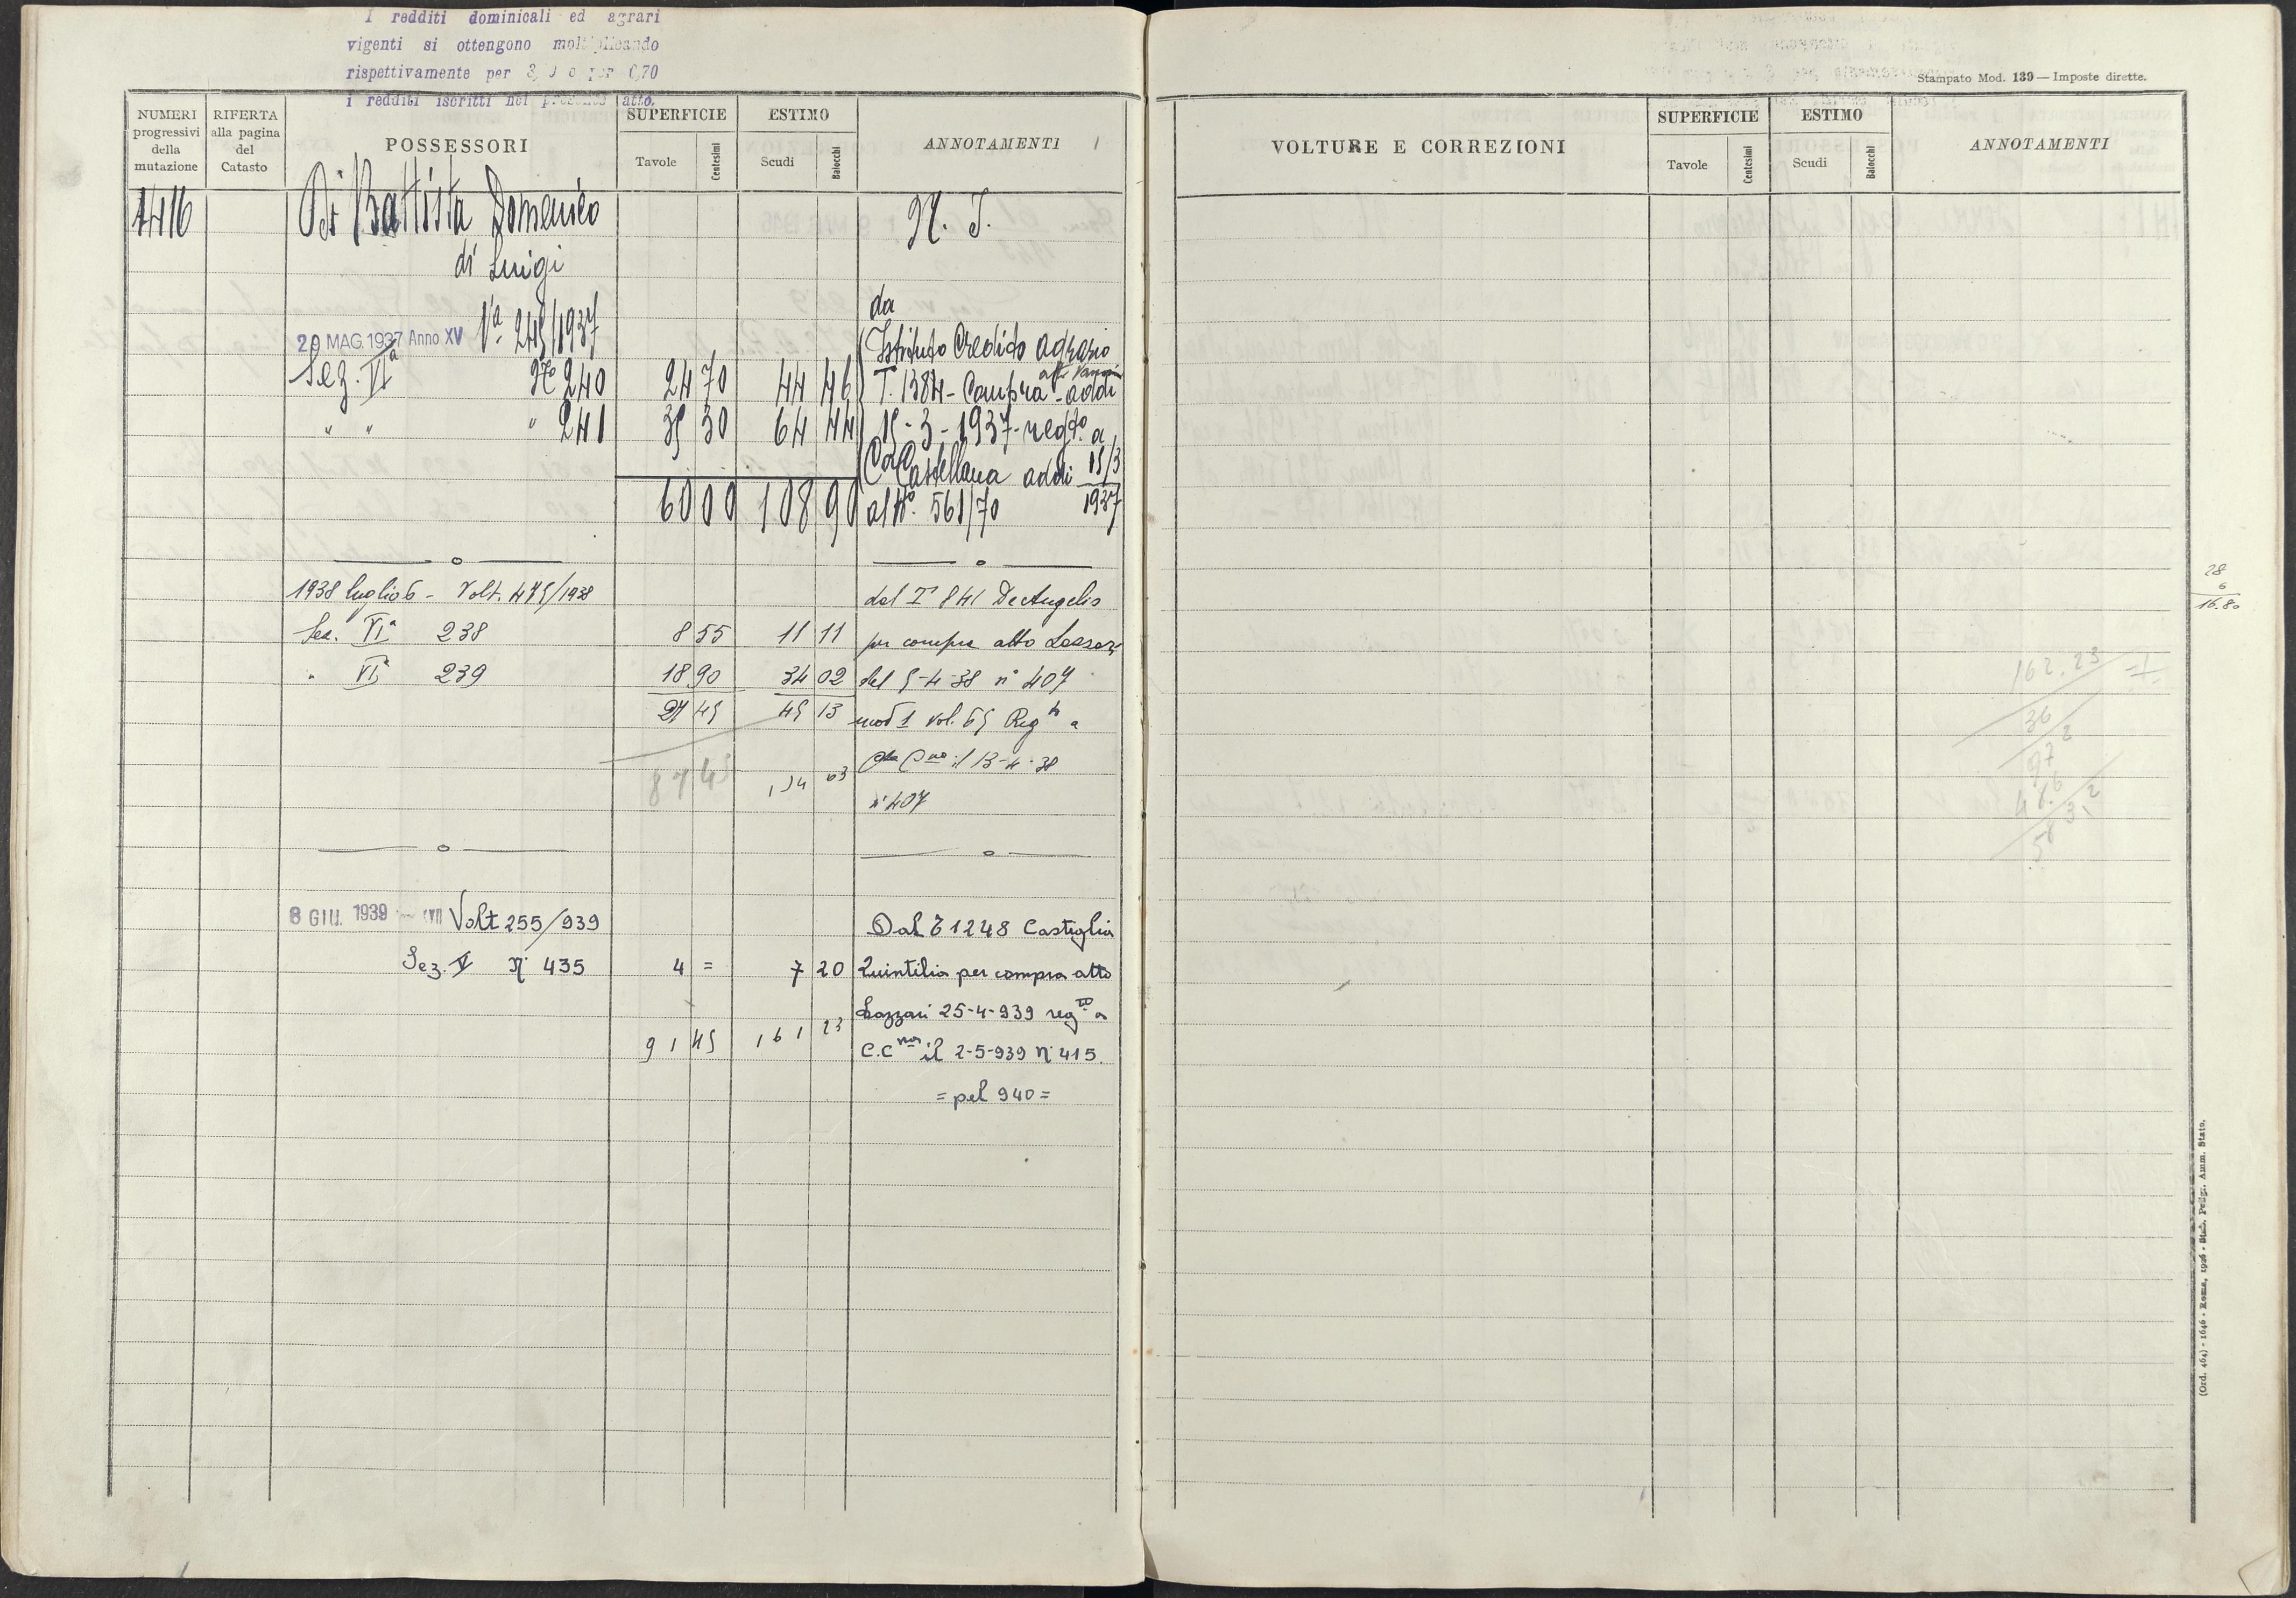 I redditi dominicali ed agrari
vigenti si ottengono moltiplicando
rispettivamente per 3, 0 e per 0,70
i redditi iscritti nel presente atto.
NUMERI progressivi della mutazione
RIFERTA alla pagina del Catasto
POSSESSORI
SUPERFICIE
Tavole Centesimi
ESTIMO
Scudi Baiocchi
ANNOTAMENTI
1416 Di Battista Domenico N. T.
di Luigi
da
29 MAG. 1937 Anno XV Va. 245/1937 Istituto Credito agrario
Sez. VIa No 240 24 70 44 46 T. 1384 - Compra - addi
" " " 241 35 30 64 44 15-3-1937 - regto. a
Castellana addi 15/3
60 00 108 90 al No. 561/70 1937
1938 luglio 6 - Volt. 475/1938 dal T 841 De Angelis
Sez. VIa 238 8 55 11 11 per compra atto Lazzari
" VIa 239 18 90 34 02 del 5-4-38 n° 407
27 45 45 13 mod 1 vol. 65 Reg to a
il 13-4-38
87 45 154 03
n° 407
8 GIU. 1939 XVII Volt 255/939 Dal T 1248 Castiglia
Sez. V N° 435 4 = 7 20 Quintilia per compra atto
Lazzari 25-4-939 reg to a
91 45 161 23 C.C na il 2-5-939 N° 415.
= pel 940 =
Stampato Mod. 139 — Imposte dirette.
VOLTURE E CORREZIONI
SUPERFICIE
Tavole Centesimi
ESTIMO
Scudi Baiocchi
ANNOTAMENTI
28
6
16.80
162.23
36
97 2
5
(Ord. 464) - 1646 - Roma, 1936 - Stab. Poligr. Amm. Stato.